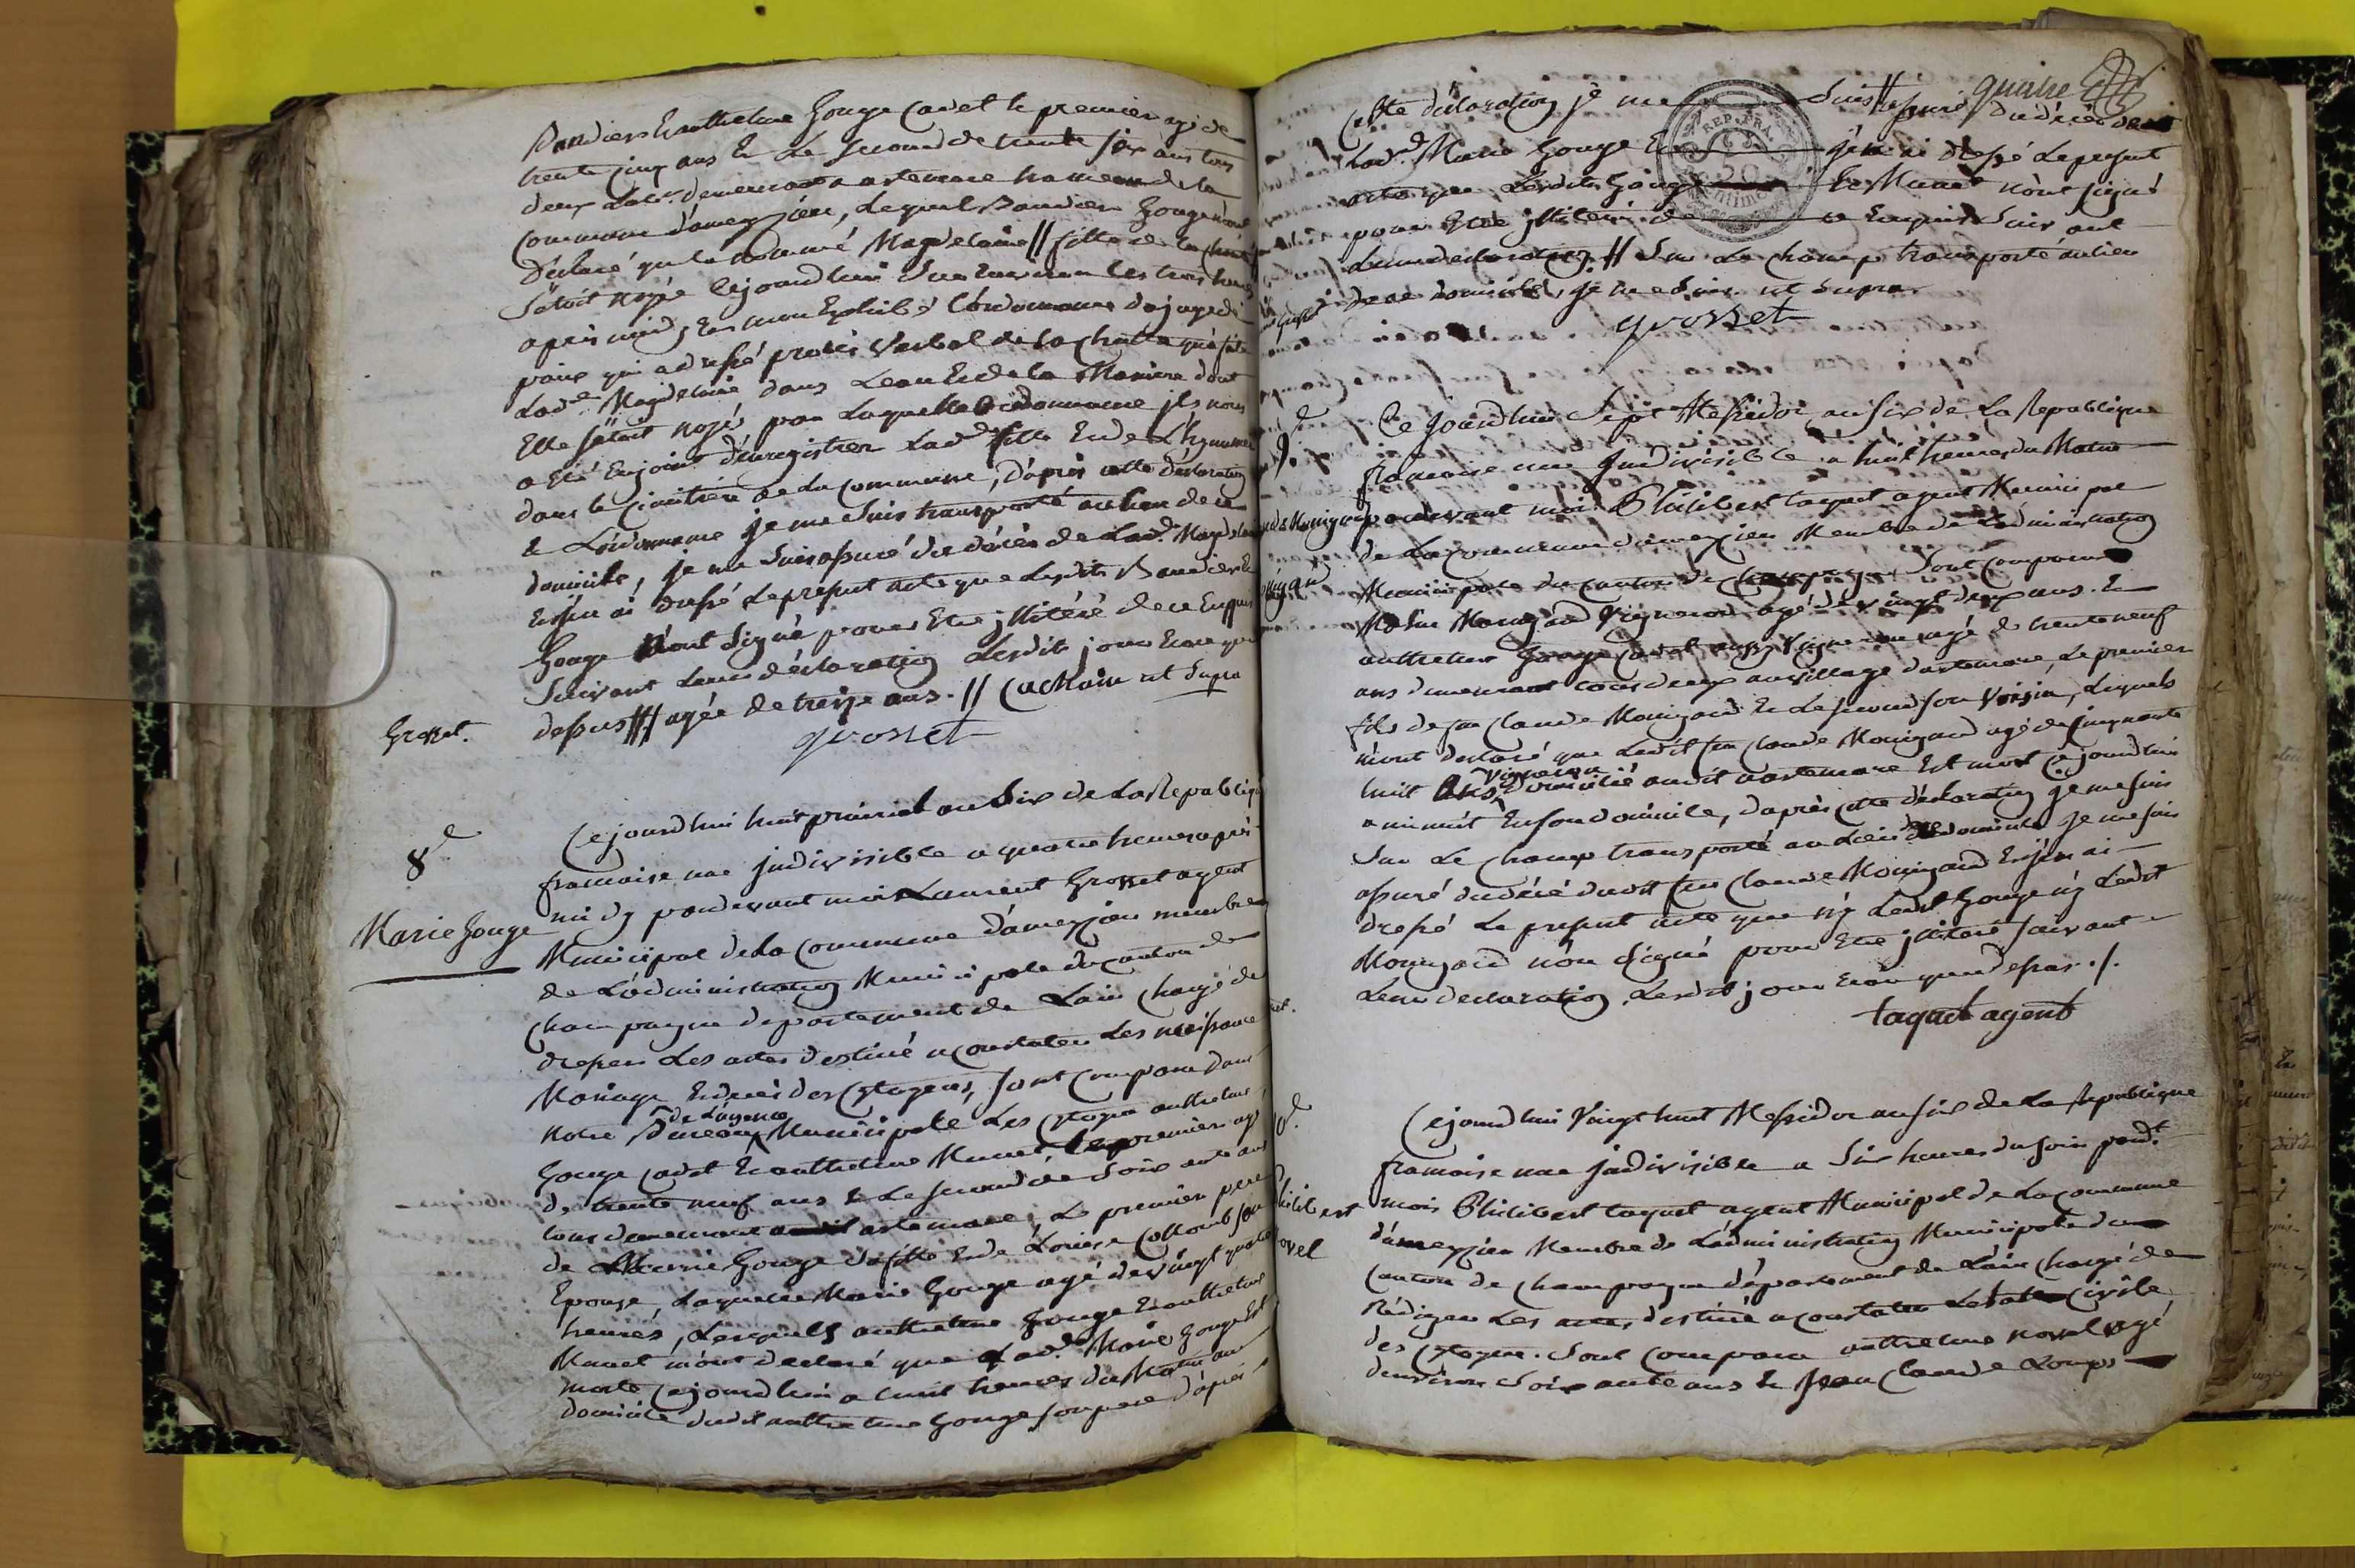 Baudier & anthelme Gouge cadet le premier agé de
trente cinq ans & Le second de trente six ans tous
deux Labr. demeurant a artemare hameau de la
commune d'ameyzieu, Lequel Baudier Gouge m'ont
Déclaré que la nommé Magdelaine // fille de la charité
s'etoit noyée cejourdhui sur environ les trois heures
apres midy, & mon Exhibé L'ordonnance du juge de
paix qui a dressé procès Verbal de la chutte qu'a fait
Lad.e Magdelaine dans Leau & de la Maniere dont
Elle s'etoit noyée, par Laquelle Ordonnance ils nous
a Eté Enjoint d'enregistrer Lad.e fille & de L'hynumer
dans le cimitiere de La commune, d'après cette déclaration
& L'ordonnance je me suis transporté au lieu de ce
domicile, je me suis assuré du décès de Lad.e Magdelaine
& j'en ai dressé Le present acte que Lesdits Baudier &
Gouge N'ont Signé pour Etre jllitéré de ce Enquis
Suivant Leur déclaration Lesdits jour & an que
Grosset. dessus /// agée de treize ans. // Cachain ut Supra
grosset
8e
Cejourdhui huit prairial an Six de La Republique
francaise une jndivisible a quatre heures après
Marie Gouge midy pardevant moi Laurent Grosset agent
Municipal de La Commune d'ameyzieu membre
de L'administration Municipale du canton de
champagne departement de Lain chargé de
dresser Les actes destiné a constater Les naissance
Mariage & decès des Citoyens, sont comparu dans
Notre Bureau de L'agence Municipale Les citoyen anthelme
Gouge cadet & anthelme Munet Le premier agé
de trente neuf ans & Le second de Soixante ans
tous demeurant audit artemare, Le premier pere
de Marie Gouge sa fille & de Louise Collomb son
Epouse, Laquelle Marie Gouge agé de vingt quatre
heures, Lesquels anthelme Gouge & anthelme
Munet m'ont declaré que Lad.e Marie Gouge Est
morte Cejourdhui a huit heures du Matin au
domicile dudit anthelme Gouge son pere d'après
quatre
Cette déclaration je me suis // assuré du décès de
Lad.e Marie Gouge & j'en ai dressé Le present
acte que Lesdits Gouge & Munet n'ont signé
pour Etre jllitéré de ce Enquis Suivant
Leur declaration // Sur Le champ transporté au lieu
de ce domicile, je me suis ut Supra
grosset
Ce jourdhui Sept Messidor an Six de La Republique
francaise une jndivisible a huit heures du Matin
pardevant moi Philibert taquet agent Municipal
de La commune d'ameyzieu Membre de Ladministration
Municipale du canton de champagne Sont Comparu
Mounard Vigneron agé de vingt deux ans &
anthelme Gouge cadet aussy Vigneron agé de trente neuf
ans demeurant tous deux au village d'artemare, Le premier
fils de feu Claude Mounard & Le second son Voisin, Lesquels
m'ont declaré que Ledit feu Claude Mounard agé de cinquante
huit Ans, Vigneron domicilié audit artemare Est mort cejourdhui
a minuit En son domicile, d'après cette déclaration je me suis
Sur Le champ transporté au Lieu de ce domicile je me suis
assuré du décé dudit feu Claude Mounard & j'en ai
dressé Le present acte que ny Ledit Gouge ny Ledit
Mounard n'on signé pour Etre jlitéré Suivant
Leur declaration Lesdit jour & an que dessus ./.
taquet agent
Philibert
Novel
Cejourdhui Vingt huit Messidor an six de La Republique
francaise une jndivisible a Six heures du soir pard.t
mois Philibert taquet agent Municipal de La commune
d'ameyzieu Membre de Ladministration Municipale du
canton de champagne département de Lain chargé de
rédiger Les actes destiné a constater Letat civile
des citoyens. Sont comparu anthelme Novel agé
denviron Soixante ans & Jean Claude Loups